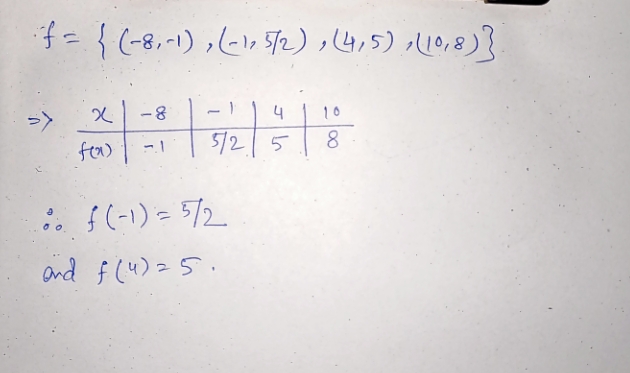 f = { (-8,-1) , (-1, 5/2) , (4,5) , (10,8) }
=> x | -8 | -1 | 4 | 10
f(x) | -1 | 5/2 | 5 | 8
∴ f(-1) = 5/2
and f(4) = 5 .